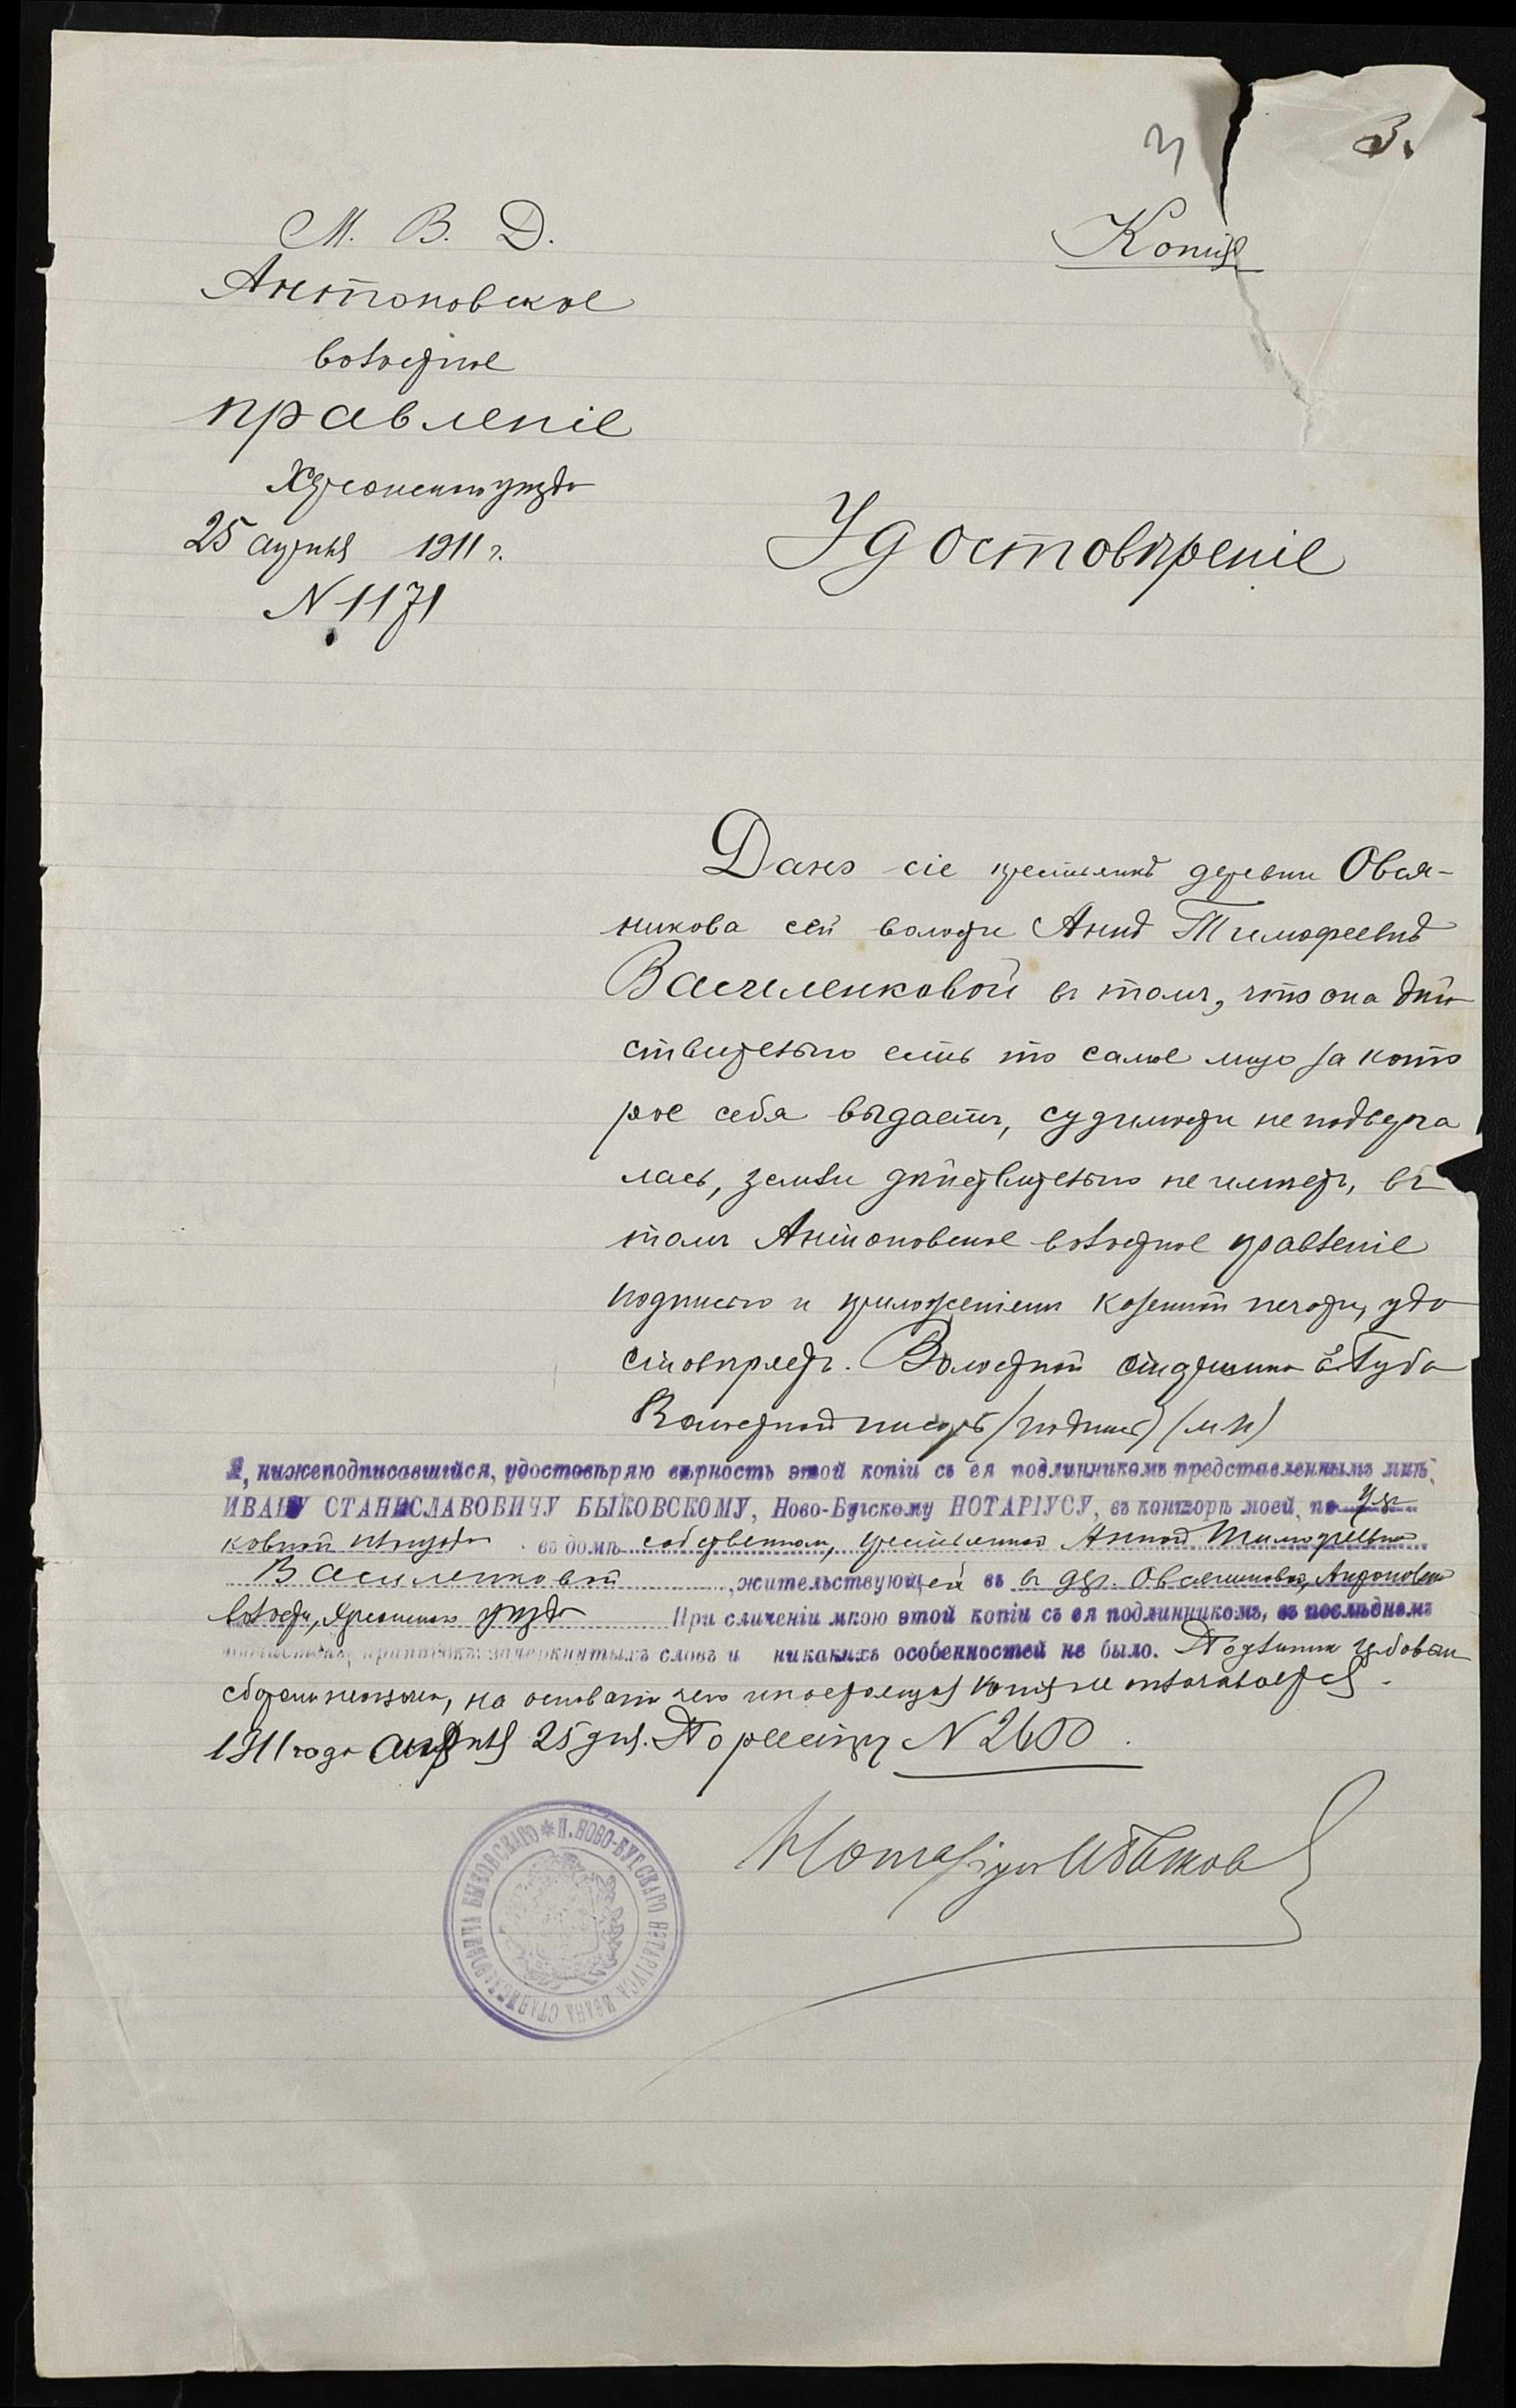 3.
Копія
М. В. Д.
Антоновское
волостное
правленіе
Херсонскаго уѣзда
25 апрѣля 1911 г.
N 1171
Удостовѣреніе
Дано сіе крестьянкѣ деревни Овся-
никова сей волости Аннѣ Тимофеевнѣ
Василенковой въ томъ, что она дѣй
ствительно есть то самое лицо за кото
рое себя выдаетъ, судимости не подверга
лась, земли дѣйствительно не имѣетъ, въ
томъ Антоновское волостное правленіе
подписью и приложеніемъ казенной печати, удо
стовѣряетъ. Волостной старшина Губа
Волостной писарь (подпись) (м п)
Я, нижеподписавшійся, удостовѣряю вѣрность этой копіи съ ея подлинникомъ представленнымъ мнѣ,
ИВАНУ СТАНИСЛАВОВИЧУ БЫКОВСКОМУ, Ново-Бугскому НОТАРІУСУ, въ конторѣ моей, по Цер
ковной площади въ домѣ собственном, крестьянкой Анной Тимофеевной
Василенковой, жительствующей въ в дер. Овсянниковой, Антоновской
волости, Херсонскаго уѣзда При сличеніи мною этой копіи съ ея подлинникомъ, въ послѣднемъ
приписокъ, зачеркнутыхъ словъ и никакихъ особенностей не было. Подлинник гербовым
сбором неоплачен, на основаніи чего и настоящая копія не оплачивается.
1911 года апрѣля 25 дня. По реестру N 2600.
Нотаріусъ И Быков
✻ П. НОВО-БУГСКАГО НОТАРІУСА ИВАНА СТАНИСЛАВОВИЧА БЫКОВСКАГО